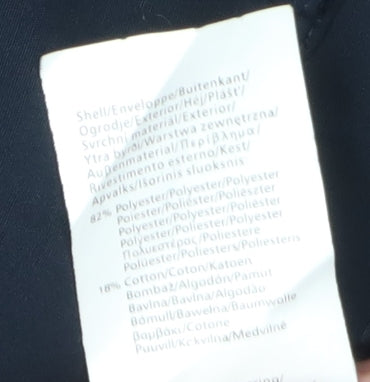 Shell/Enveloppe/Buitenkant/
Ogrodje/Exterior/Héj/Plášť/
Svrchní materiál/Exterior/
Ytra byrði/Warstwa zewnętrzna/
Außenmaterial/Περίβλημα/
Rivestimento esterno/Kest/
Apvalks/Išorinis sluoksnis
82% Polyester/Polyester/Polyester
Poliester/Poliéster/Poliészter
Polyester/Poliéster/Polyester
Polyester/Polyester/Polyester
Πολυεστέρας/Poliestere
Polüester/Poliesters/Poliesteris
18% Cotton/Coton/Katoen
Bombaž/Algodón/Pamut
Bavlna/Bavlna/Algodão
Bómull/Bawełna/Baumwolle
Βαμβάκι/Cotone
Puuvill/Kokvilna/Medvilnė